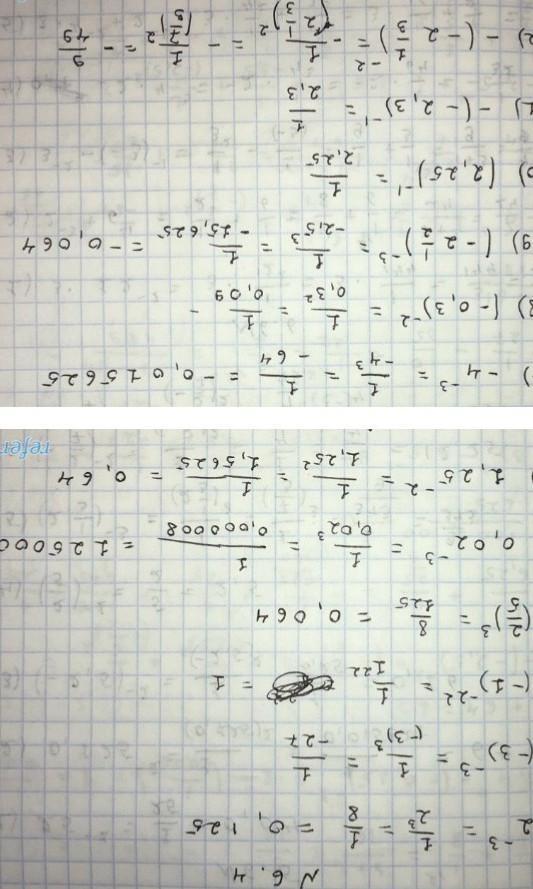 N 6.4
2⁻³ = 1/2³ = 1/8 = 0,125
(-3)⁻³ = 1/(-3)³ = 1/-27
(-1)⁻²² = 1/1²² = 1
(2/5)³ = 8/125 = 0,064
0,02⁻³ = 1/0,02³ = 1/0,000008 = 125000
1,25⁻² = 1/1,25² = 1/1,5625 = 0,64
refer
) -4⁻³ = 1/-4³ = 1/-64 = -0,015625
) (-0,3)⁻² = 1/0,3² = 1/0,09
9) (-2 1/2)⁻³ = 1/-2,5³ = 1/-15,625 = -0,064
) (2,25)⁻¹ = 1/2,25
) -(-2,3)⁻¹ = 1/2,3
) -(-2 1/3)⁻² = - 1/(2 1/3)² = - 1/(7/3)² = - 9/49